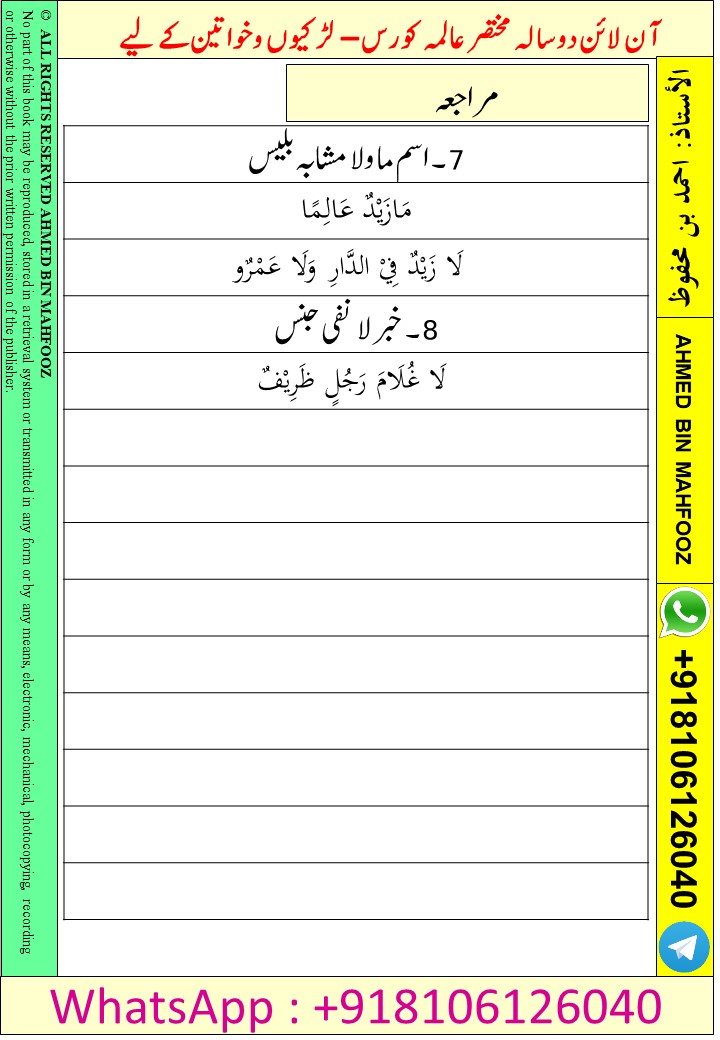 آن لائن دوسالہ مختصر عالمہ کورس – لڑکیوں وخواتین کے لیے
مراجعہ
7۔اسم ماولا مشابہ بلیس
مَازَيْدٌ عَالِمًا
لَا زَيْدٌ فِيْ الدَّارِ وَلَا عَمْرٌو
8۔خبر لا نفی جنس
لَا غُلَامَ رَجُلٍ ظَرِيْفٌ
الأستاذ: احمد بن محفوظ
AHMED BIN MAHFOOZ
+918106126040
© ALL RIGHTS RESERVED AHMED BIN MAHFOOZ
No part of this book may be reproduced, stored in a retrieval system or transmitted in any form or by any means, electronic, mechanical, photocopying, recording
or otherwise without the prior written permission of the publisher.
WhatsApp : +918106126040